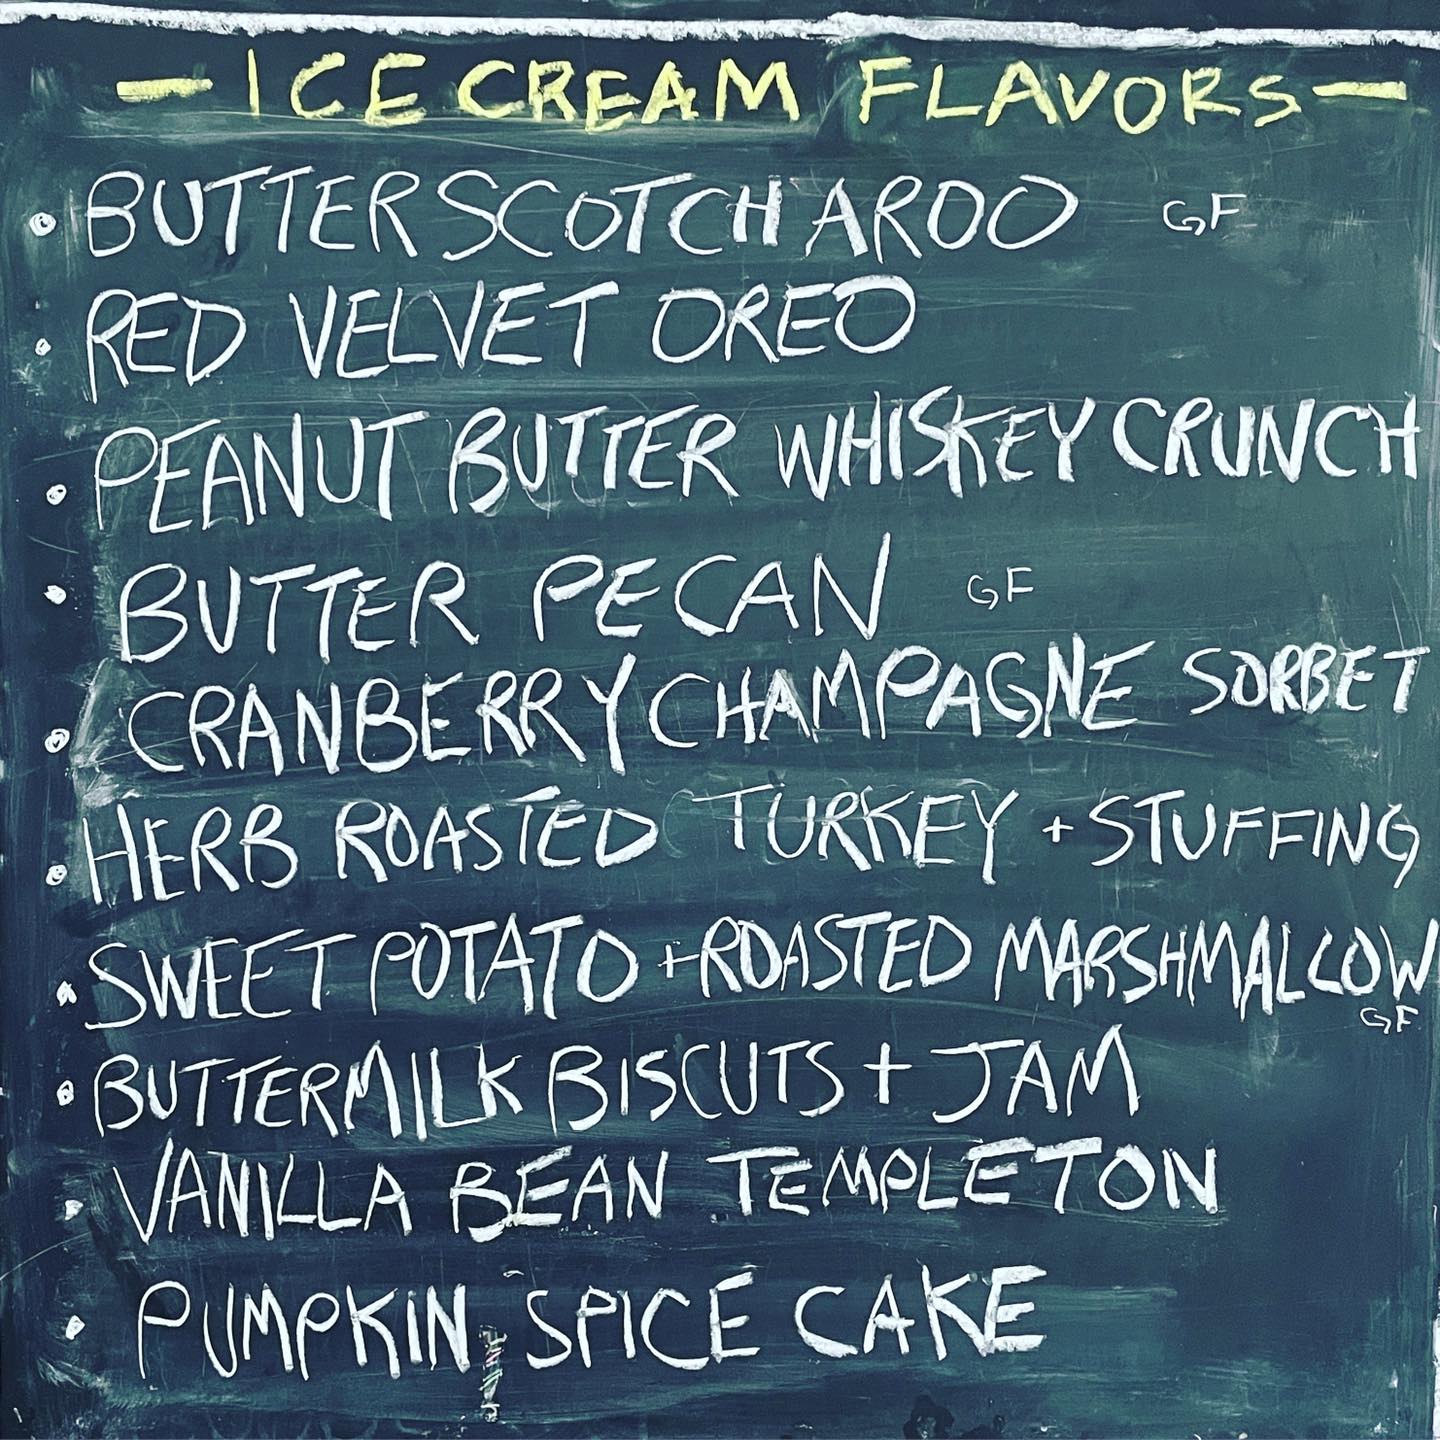 — ICE CREAM FLAVORS —
• BUTTERSCOTCHAROO GF
• RED VELVET OREO
• PEANUT BUTTER WHISKEY CRUNCH
• BUTTER PECAN GF
• CRANBERRY CHAMPAGNE SORBET
• HERB ROASTED TURKEY + STUFFING
• SWEET POTATO + ROASTED MARSHMALLOW
GF
• BUTTERMILK BISCUTS + JAM
• VANILLA BEAN TEMPLETON
• PUMPKIN SPICE CAKE